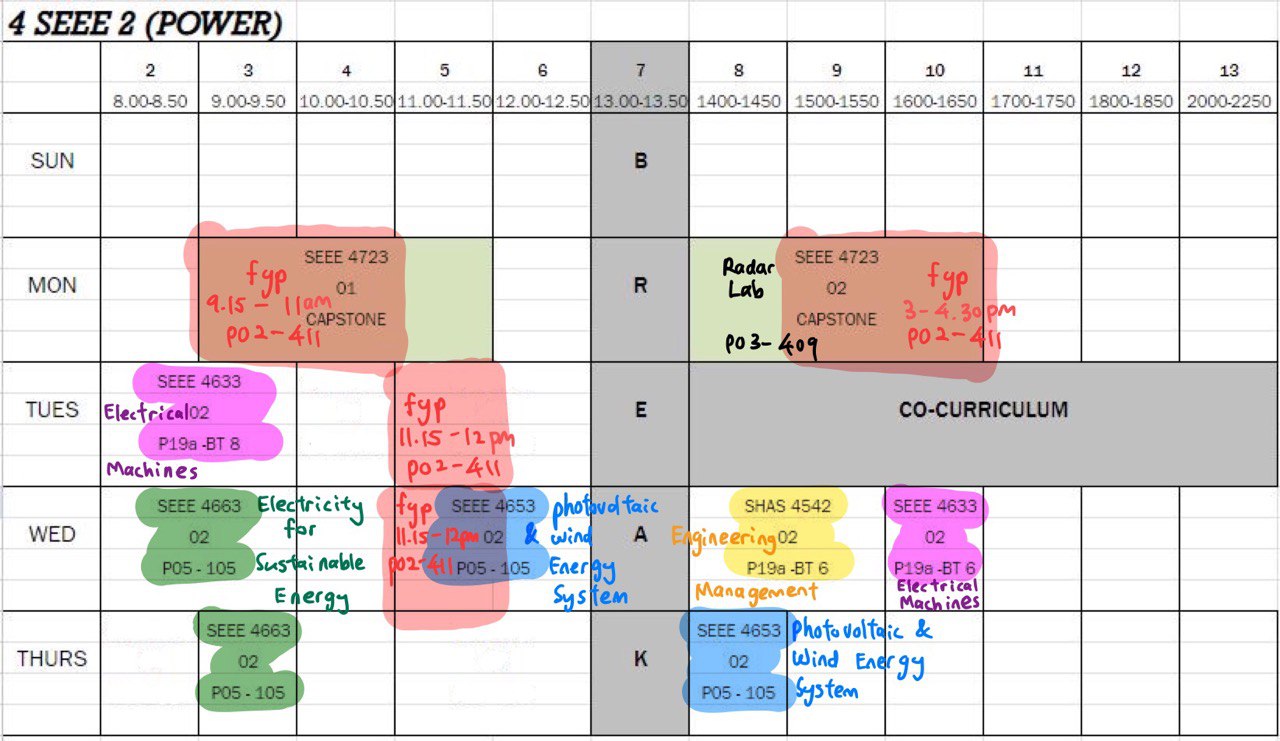 4 SEEE 2 (POWER)
2 3 4 5 6 7 8 9 10 11 12 13
8.00-8.50 9.00-9.50 10.00-10.50 11.00-11.50 12.00-12.50 13.00-13.50 1400-1450 1500-1550 1600-1650 1700-1750 1800-1850 2000-2250
SUN
B
MON
fyp
9.15 - 11am
P02-411
SEEE 4723
01
CAPSTONE
R
Radar
Lab
P03-409
SEEE 4723
02
CAPSTONE
fyp
3-4.30pm
P02-411
TUES
SEEE 4633
Electrical 02
P19a -BT 8
Machines
fyp
11.15 - 12pm
P02-411
E
CO-CURRICULUM
WED
SEEE 4663
02
P05 - 105
Electricity
for
Sustainable
Energy
fyp
11.15 - 12pm
P02-411
SEEE 4653
02
P05 - 105
photovoltaic
& wind
Energy
System
A
SHAS 4542
Engineering 02
P19a -BT 6
Management
SEEE 4633
02
P19a -BT 6
Electrical
Machines
THURS
SEEE 4663
02
P05 - 105
K
SEEE 4653
02
P05 - 105
photovoltaic &
Wind Energy
System